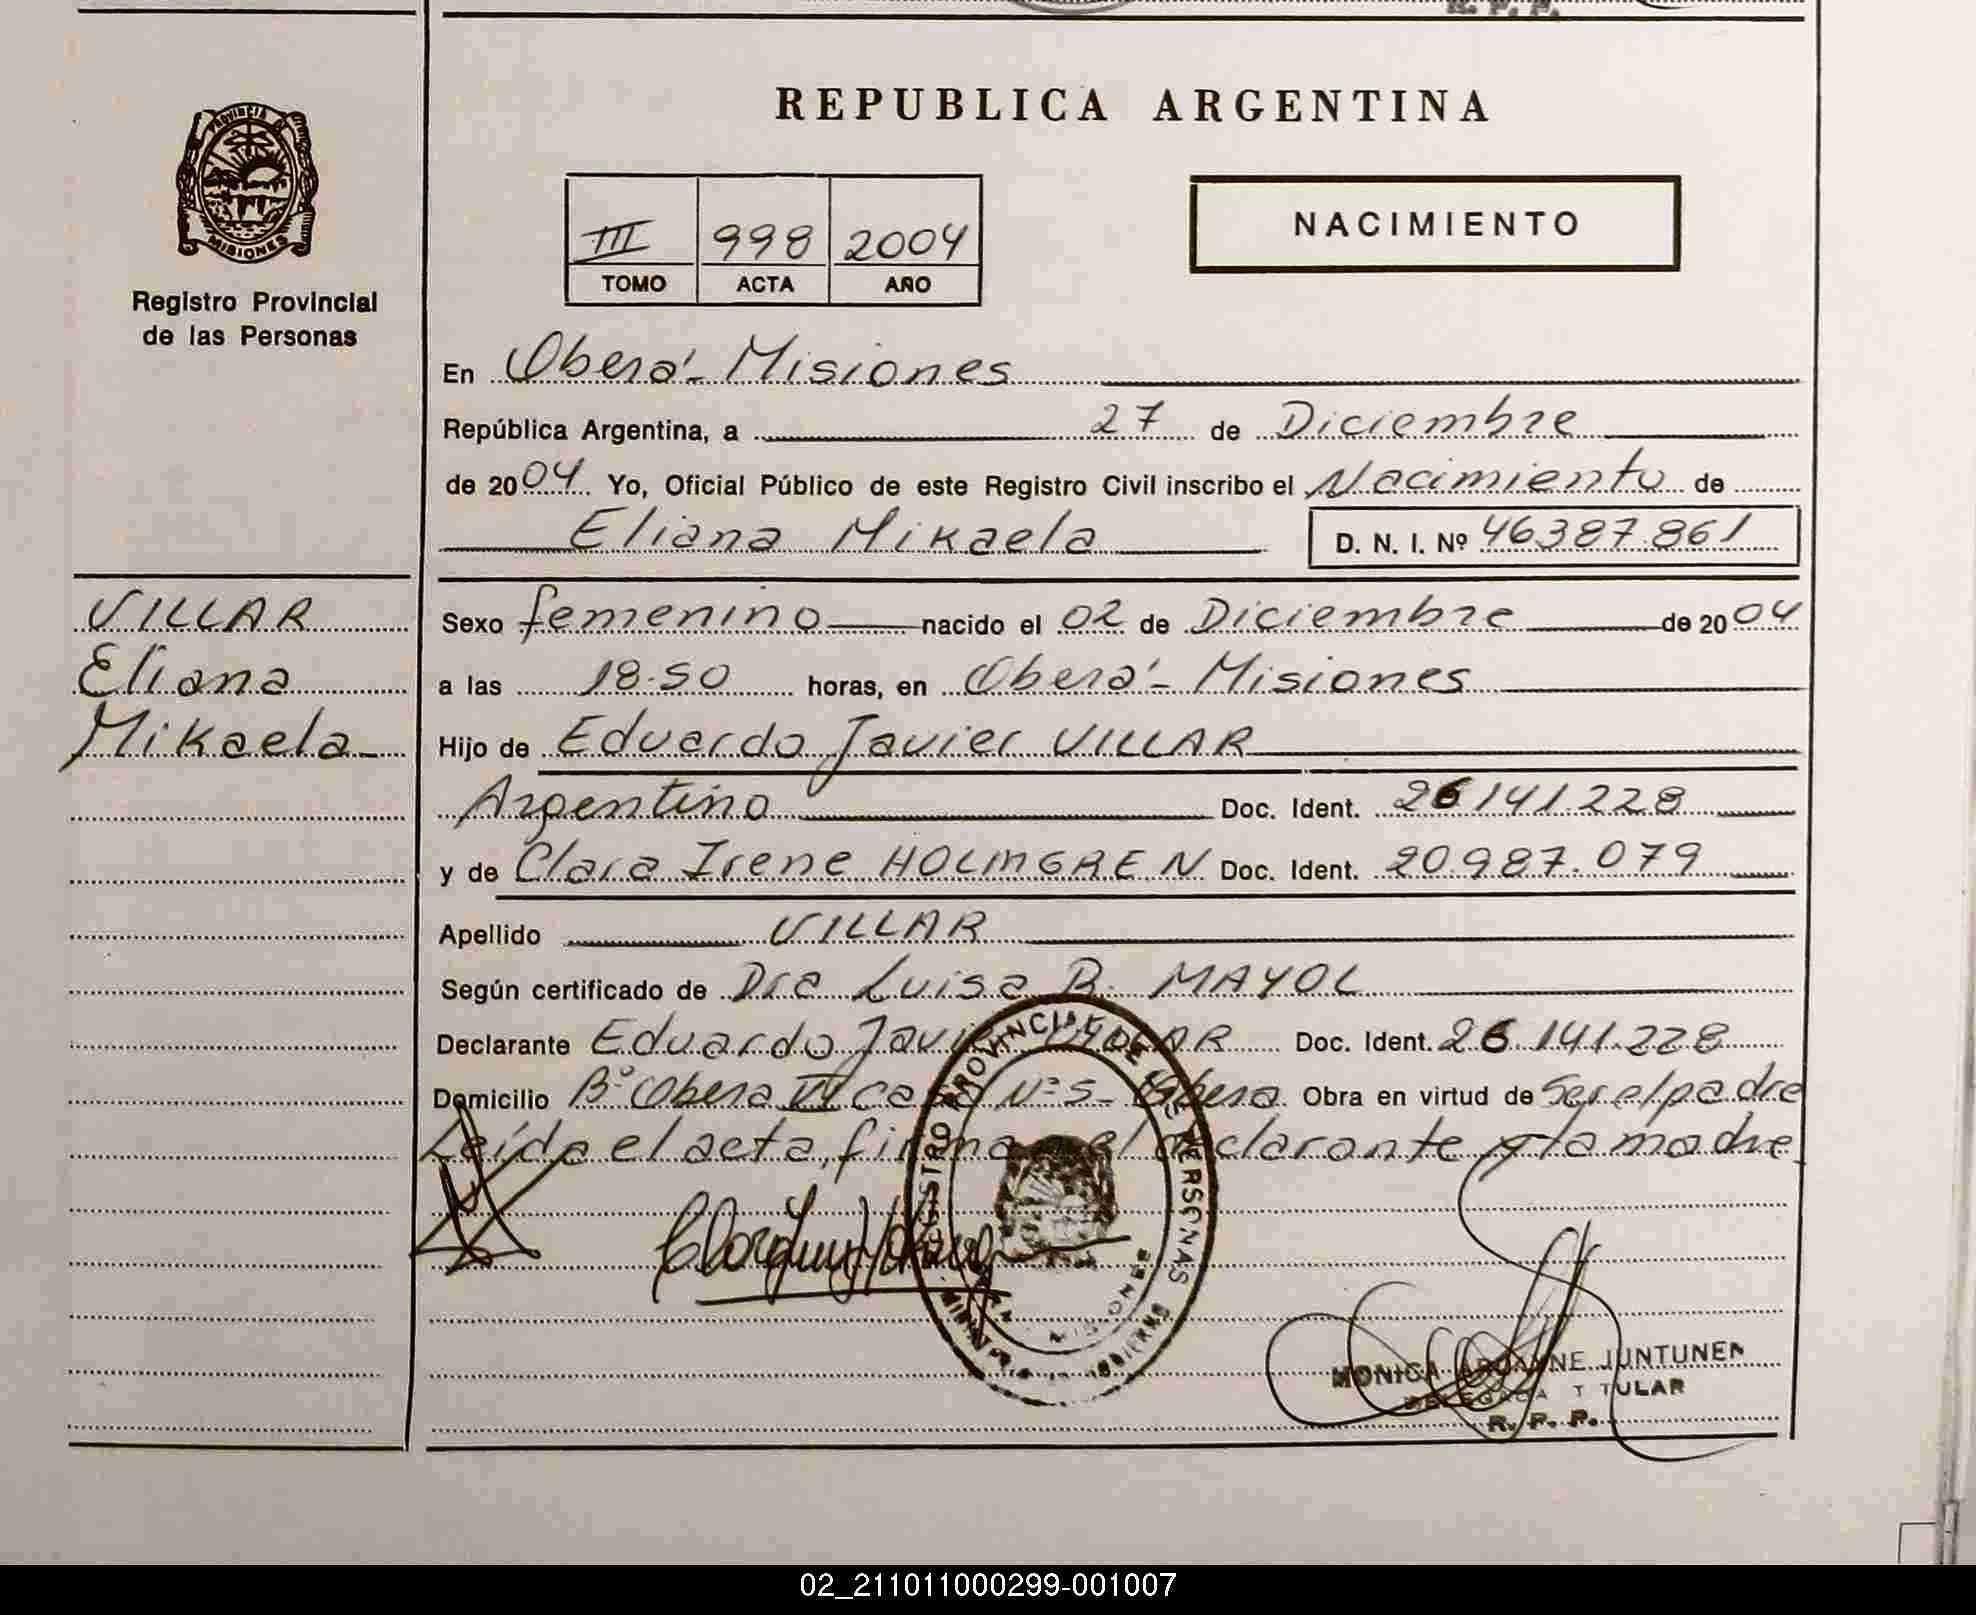 R. P. P.
PROVINCIA DE
MISIONES
Registro Provincial
de las Personas
VILLAR
Eliana
Mikaela
REPUBLICA ARGENTINA
III 998 2004
TOMO ACTA AÑO
NACIMIENTO
En Oberá - Misiones
República Argentina, a 27 de Diciembre
de 2004 Yo, Oficial Público de este Registro Civil inscribo el Nacimiento de
Eliana Mikaela D. N. I. Nº 46387.861
Sexo femenino nacido el 02 de Diciembre de 2004
a las 18.50 horas, en Oberá - Misiones
Hijo de Eduardo Javier VILLAR
Argentino Doc. Ident. 26141.228
y de Clara Irene HOLMGREN Doc. Ident. 20.987.079
Apellido VILLAR
Según certificado de Dra Luisa B. MAYOL
Declarante Eduardo Javier VILLAR Doc. Ident. 26.141.228
Domicilio Bº Obera VI Casa Nº 5 - Obera. Obra en virtud de Ser el padre
Leída el acta, firman el declarante y la madre
REGISTRO PROVINCIAL DE LAS PERSONAS
MISIONES
MONICA JUNTUNEN
DELEGADA TITULAR
R. P. P.
02_211011000299-001007